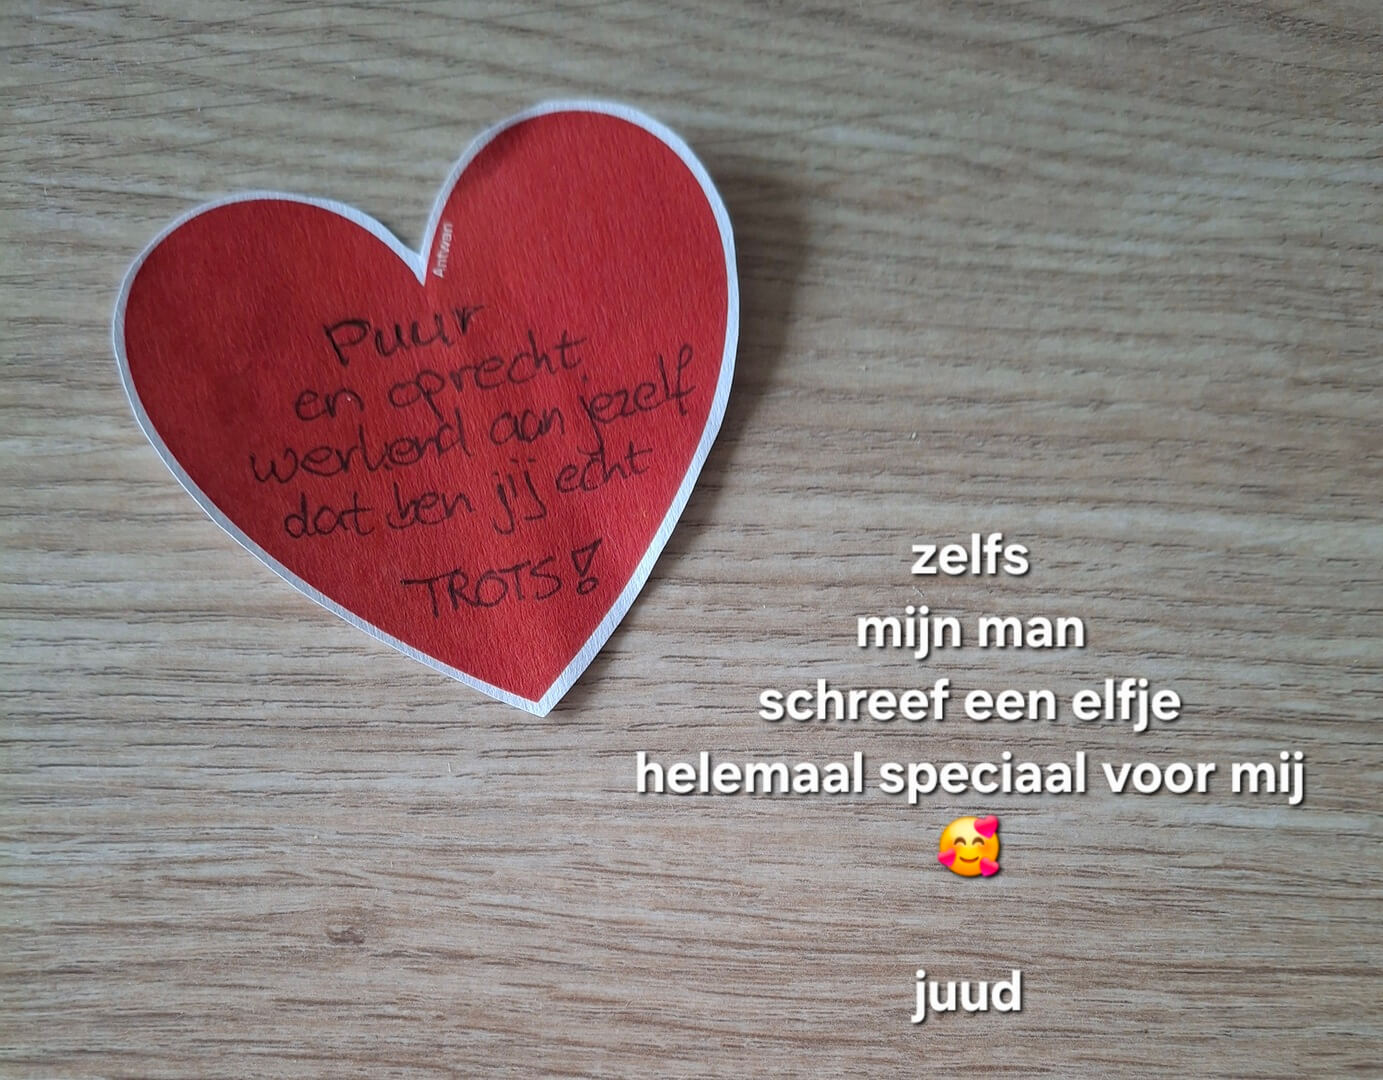 Antwan
Puur
en oprecht
werkend aan jezelf
dat ben jij echt
TROTS!
zelfs
mijn man
schreef een elfje
helemaal speciaal voor mij
🥰
juud